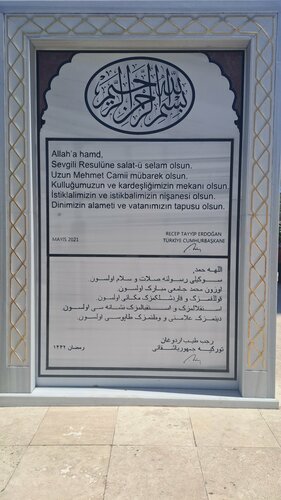 بسم الله الرحمن الرحيم
Allah'a hamd,
Sevgili Resulüne salat-ü selam olsun.
Uzun Mehmet Camii mübarek olsun.
Kulluğumuzun ve kardeşliğimizin mekanı olsun.
İstiklalimizin ve istikbalimizin nişanesi olsun.
Dinimizin alameti ve vatanımızın tapusu olsun.
RECEP TAYYİP ERDOĞAN
MAYIS 2021
TÜRKİYE CUMHURBAŞKANI
اللهه حمد,
سوكيلی رسولنه صلات و سلام اولسون.
اوزون محمد جامعی مبارک اولسون.
قوللغمزک و قاردشلكمزک مكانی اولسون.
استقلالمزک و استقبالمزک نشانه سی اولسون.
دينمزک علامتی و وطنمزک طاپوسی اولسون.
رجب طيب اردوغان
رمضان ١٤٤٢
توركيه جمهورباشقانی